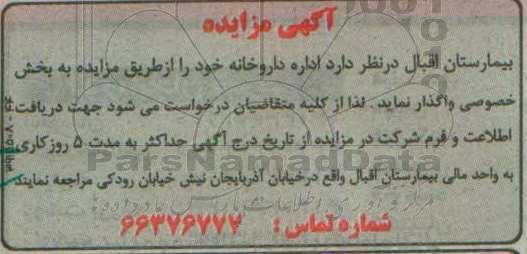 آگهی مزایده
بیمارستان اقبال درنظر دارد اداره داروخانه خود را ازطریق مزایده به بخش
خصوصی واگذار نماید . لذا از کلیه متقاضیان درخواست می شود جهت دریافت
اطلاعت و فرم شرکت در مزایده از تاریخ درج آگهی حداکثر به مدت ۵ روزکاری
به واحد مالی بیمارستان اقبال واقع درخیابان آذربایجان نبش خیابان رودکی مراجعه نمایند
شماره تماس : ۶۶۳۷۶۷۷۲
ParsNamadData